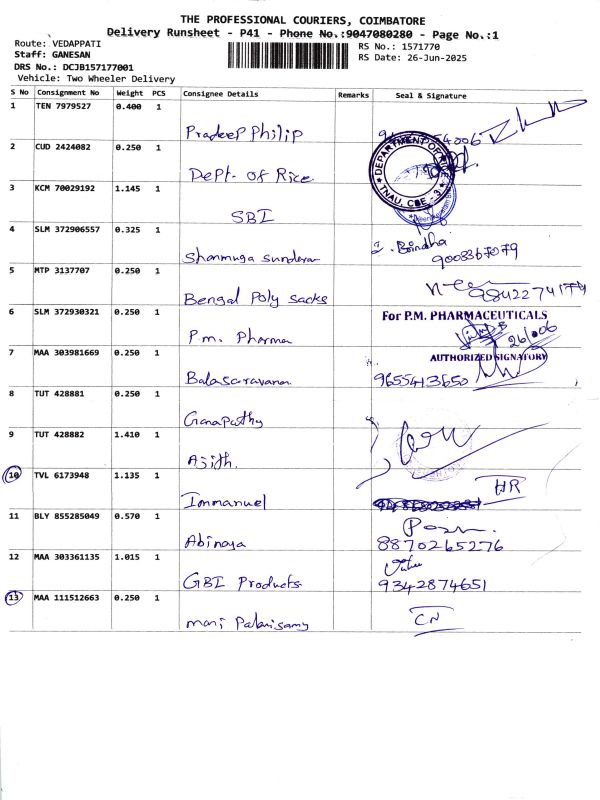 THE PROFESSIONAL COURIERS, COIMBATORE
Delivery Runsheet - P41 - Phone No.:9047080280 - Page No.:1
Route: VEDAPPATI
RS No.: 1571770
Staff: GANESAN
RS Date: 26-Jun-2025
DRS No.: DCJB157177001
Vehicle: Two Wheeler Delivery
S No Consignment No Weight PCS Consignee Details Remarks Seal & Signature
1 TEN 7979527 0.400 1
Pradeep Philip
2 CUD 2424082 0.250 1
DEPARTMENT OF RICE
TNAU, CBE - 3
Dept. of Rice
3 KCM 70029192 1.145 1
SBI
4 SLM 372906557 0.325 1
Shanmuga sunderan
9003367079
5 MTP 3137707 0.250 1
Bengal Poly sacks 9842274174
6 SLM 372930321 0.250 1
For P.M. PHARMACEUTICALS
P.m. Pharma
26/006
7 MAA 303981669 0.250 1
AUTHORIZED SIGNATORY
Balasaravanan 9655413650
8 TUT 428881 0.250 1
Ganapathy
9 TUT 428882 1.410 1
Ajith.
10 TVL 6173948 1.135 1
HR
Immanuel
11 BLY 855285049 0.570 1
Abinaya 8870265276
12 MAA 303361135 1.015 1
GBI Products 9342874651
13 MAA 111512663 0.250 1
mani Palanisamy CN